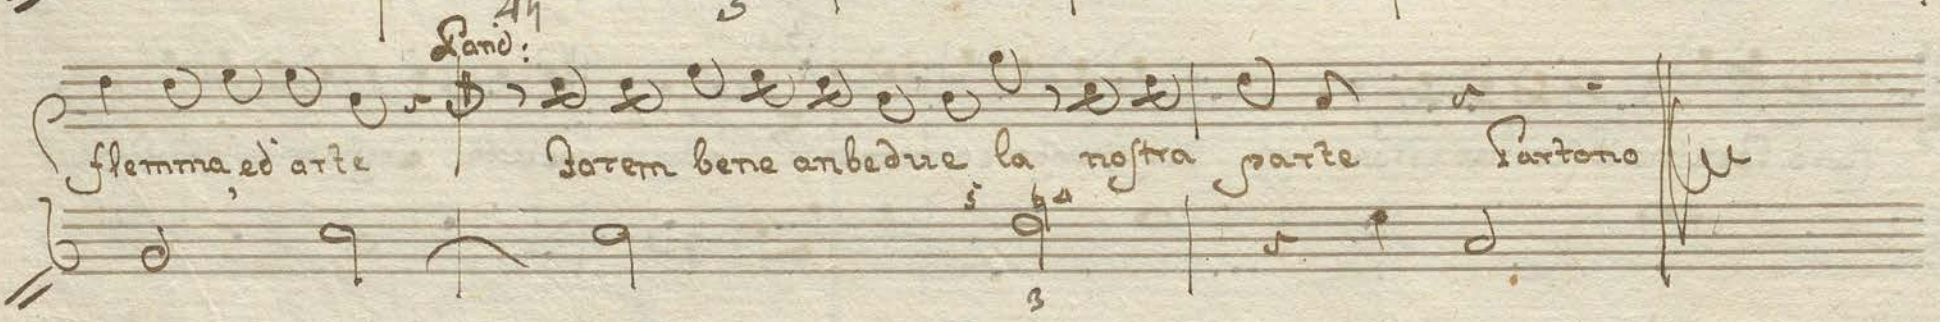 Pand:
flemma, ed' arte Farem bene anbedue la nostra parte Partono
5 6 4
3